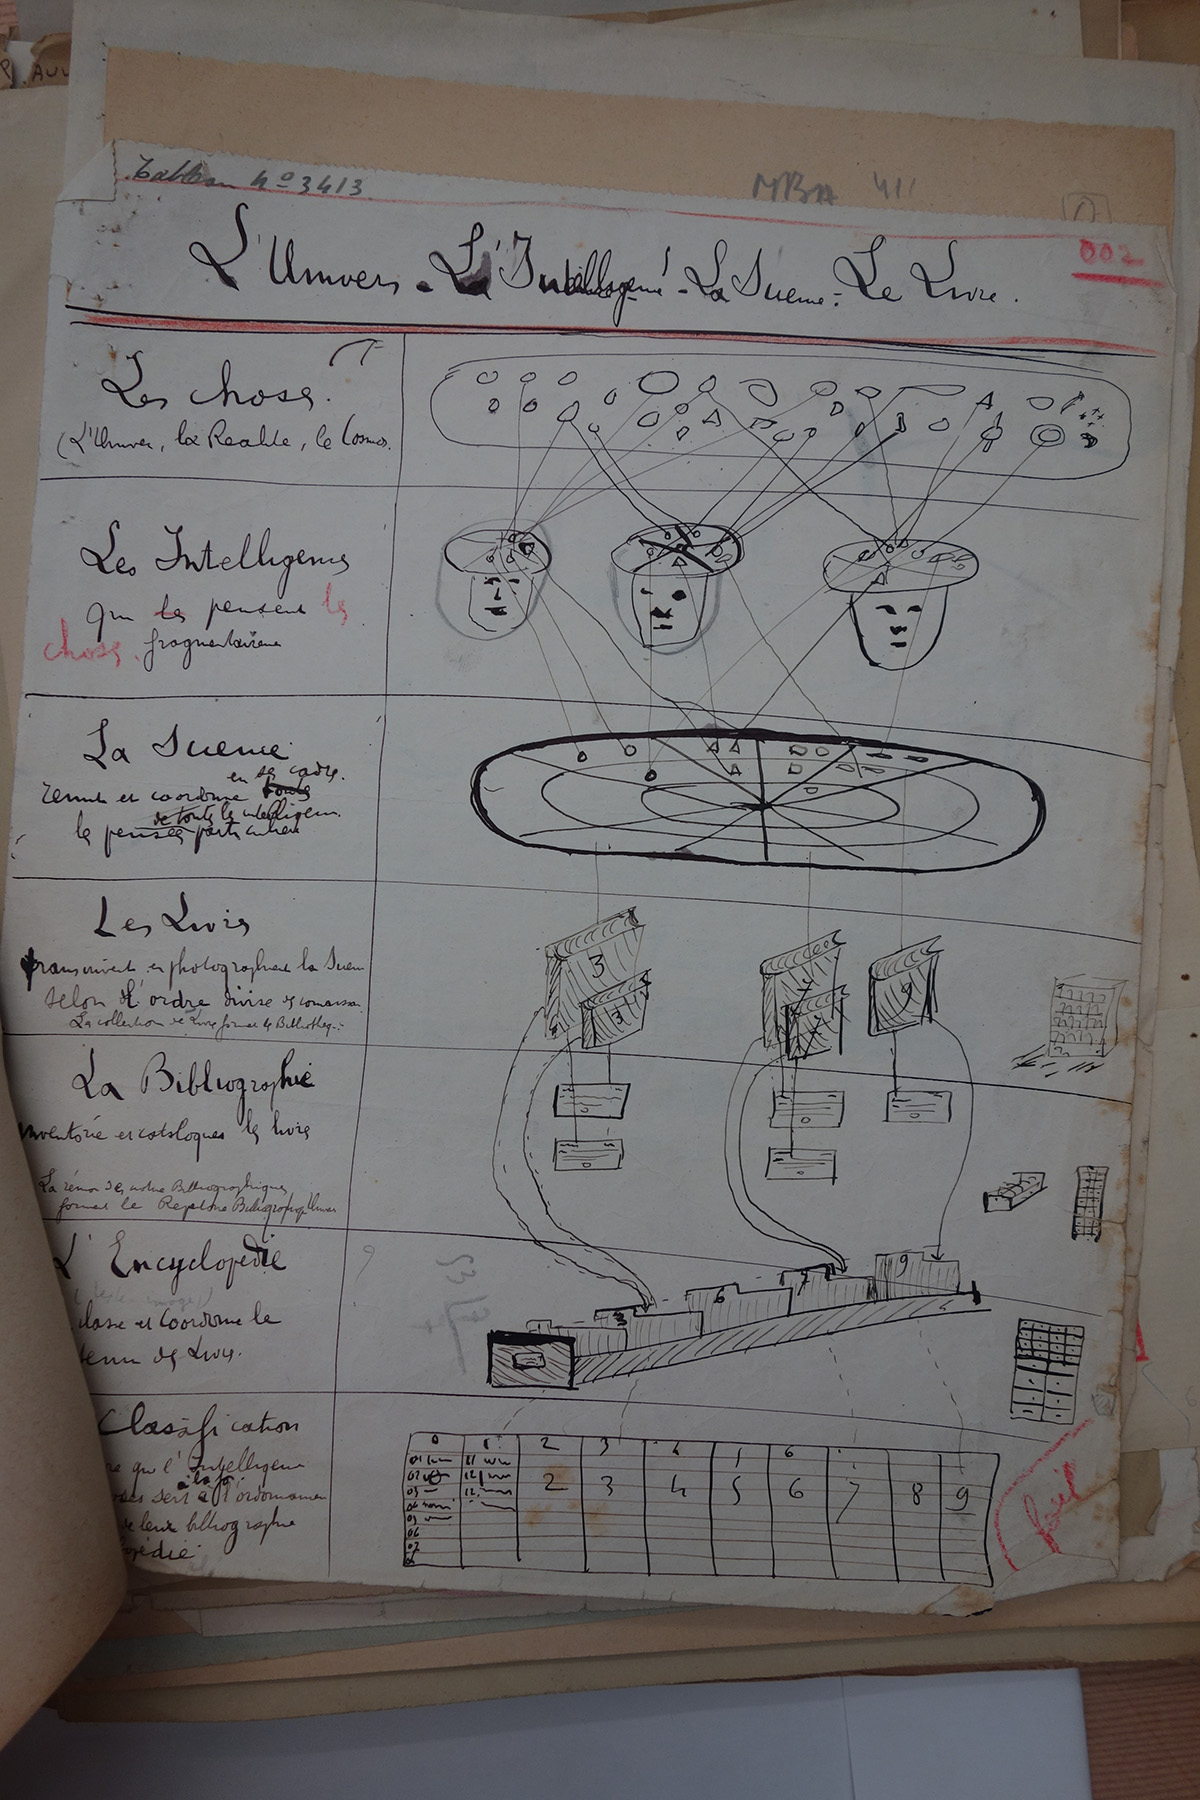 P. AUV
Tableau No 3413
MBA 411
002
L'Univers - L'Intelligence - La Science - Le Livre.
Les choses.
(L'Univers, la Réalité, le Cosmos.
Les Intelligences
qui pensent les
choses. fragmentairement
La Science
en ses cadres.
réunit et coordonne
de toutes les intelligences.
les pensées particulières
Les Livres
transcrivent et photographient la Science
selon l'ordre divisé des connaissances
La collection de livres forme la Bibliothèque
3
3
7
7
9
La Bibliographie
inventorie et catalogue les livres
La réunion des notices Bibliographiques
forme le Répertoire Bibliographique Univer
L'Encyclopédie
classe et coordonne le
des Livres.
3
6
7
9
Classification
que l'Intelligence
sert à l'ordonnancement
de leur bibliographie
pédie.
0 1 2 3 4 5 6
2 3 4 5 6 7 8 9